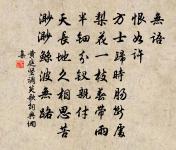 無語
恨如許
方士歸時腸斷處
梨花一枝春帶雨
半鈿分釵親付
天長地久相思苦
渺渺鯨波無路
黃庭堅調笑歌詞典網
集